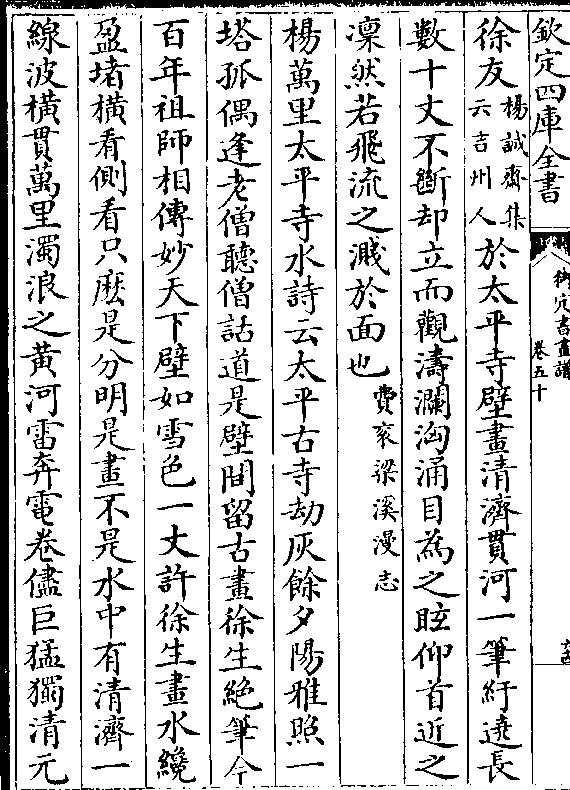 欽定四庫全書
御定書畫譜
卷五十
徐友楊誠齋集云吉州人於太平寺壁畫清濟貫河一筆紆遶長
數十丈不斷却立而觀濤瀾洶涌目為之眩仰首近之
凜然若飛流之濺於面也費衮梁溪漫志
楊萬里太平寺水詩云太平古寺劫灰餘夕陽雅照一
塔孤偶逢老僧聽僧話道是壁間留古畫徐生絶筆今
百年祖師相傳妙天下壁如雪色一丈許徐生畫水纔
盈堵横看側看只麽是分明是畫不是水中有清濟一
線波横貫萬里濁浪之黄河雷奔電卷儘巨猛獨清元